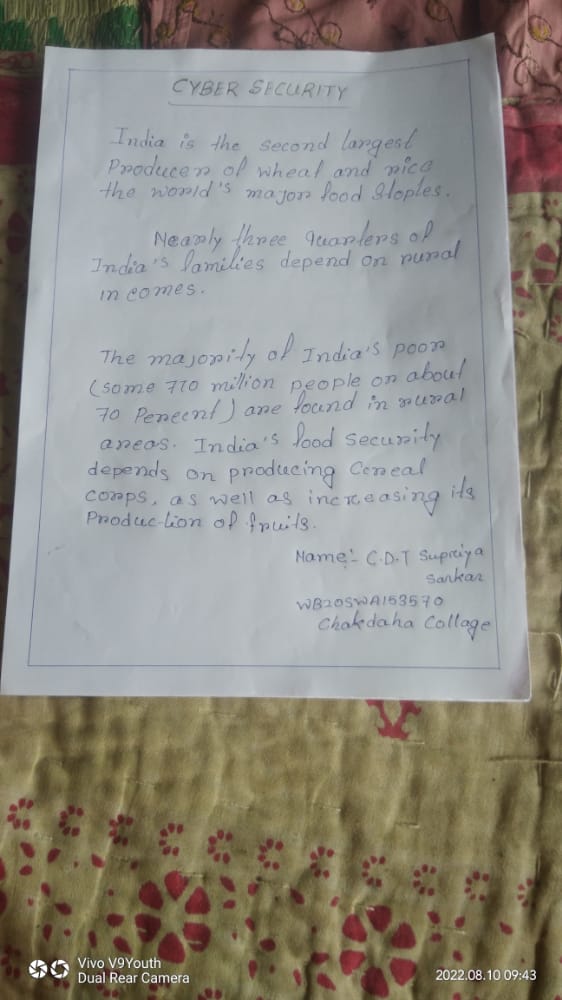 CYBER SECURITY
India is the second largest
Producer of wheat and rice
the world's major food Stoples.
Nearly three quarters of
India's families depend on rural
in comes.
The majority of India's poor
(some 770 million people or about
70 Pereent) are found in rural
areas. India's food security
depends on producing Cereal
corps, as well as increasing its
Production of fruits.
Name:- C.D.T Supriya
Sarkar
WB20SWA153570
Chakdaha Collage
Vivo V9Youth
Dual Rear Camera
2022.08.10 09:43